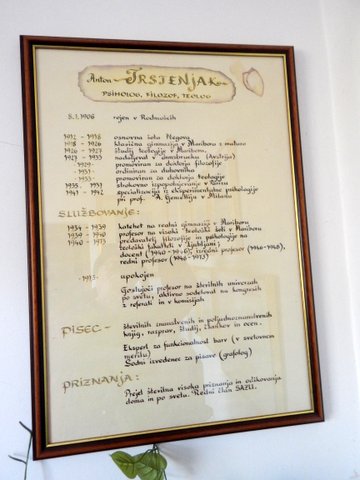 Anton TRSTENJAK
PSIHOLOG, FILOZOF, TEOLOG
8.1.1906 rojen v Rodmošcih
1912 - 1918 osnovna šola Negova
1918 - 1926 klasična gimnazija v Mariboru z maturo
1926 - 1927 študij teologije v Mariboru,
1927 - 1933 nadaljeval v Innsbrucku (Avstrija)
-1929- promoviran za doktorja filozofije
-1931- ordiniran za duhovnika
-1933- promoviran za doktorja teologije
1935, 1937 strokovno izpopolnjevanje v Parizu
1941 - 1942 specializacija iz eksperimentalne psihologije
pri prof. A. Gemelliju v Milanu
SLUŽBOVANJE:
1934 - 1939 katehet na realni gimnaziji v Mariboru
1939 - 1940 profesor na visoki teološki šoli v Mariboru
1940 - 1973 predavatelj filozofije in psihologije na
teološki fakult. v Ljubljani;
docent (1940-1946), izredni profesor (1946-1948),
redni profesor (1948-1973)
-1973- upokojen
Gostujoči profesor na številnih univerzah
po svetu, aktivno sodeloval na kongresih
z referati in v komisijah.
PISEC - številnih znanstvenih in poljudnoznanstvenih
knjig, razprav, študij, člankov in ocen.
Ekspert za funkcionalnost barv (v svetovnem
merilu)
Sodni izvedenec za pisave (grafolog)
PRIZNANJA:
Prejel številna visoka priznanja in odlikovanja
doma in po svetu. Redni član SAZU.